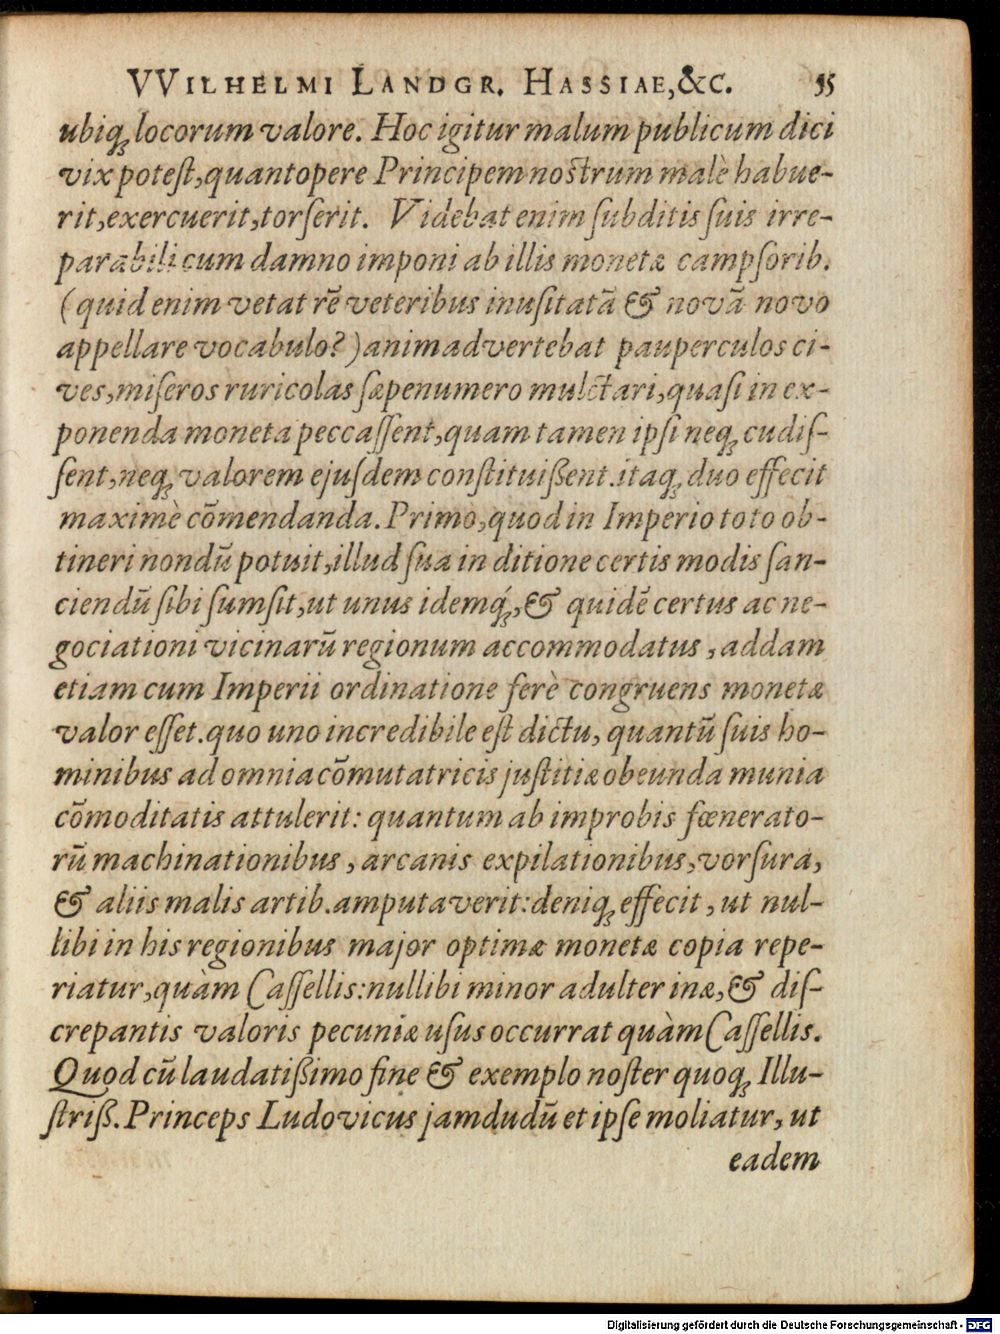 VVILHELMI LANDGR. HASSIAE, &C. 55
ubiq́ꝫ locorum valore. Hoc igitur malum publicum dici
vix poteſt, quantopere Principem noſtrum malè habue-
rit, exercuerit, torſerit. Videbat enim ſubditis ſuis irre-
parabili cum damno imponi ab illis monetæ campſorib.
(quid enim vetat rē veteribus inuſitatā & novā novo
appellare vocabulo?) animadvertebat pauperculos ci-
ves, miſeros ruricolas ſæpenumero mulctari, quaſi in ex-
ponenda moneta peccaſſent, quam tamen ipſi neqꝫ cudiſ-
ſent, neqꝫ valorem ejuſdem conſtituißent. itaqꝫ duo effecit
maximè cōmendanda. Primo, quod in Imperio toto ob-
tineri nondū potuit, illud ſua in ditione certis modis ſan-
ciendū ſibi ſumſit, ut unus idemq́ꝫ, & quidē certus ac ne-
gociationi vicinarū regionum accommodatus, addam
etiam cum Imperii ordinatione ferè congruens monetæ
valor eſſet. quo uno incredibile eſt dictu, quantū ſuis ho-
minibus ad omnia cōmutatricis juſtitiæ obeunda munia
cōmoditatis attulerit: quantum ab improbis fœnerato-
rū machinationibus, arcanis expilationibus, vorſura,
& aliis malis artib. amputaverit: deniqꝫ effecit, ut nul-
libi in his regionibus major optimæ monetæ copia repe-
riatur, quàm Caſſellis: nullibi minor adulterinæ, & diſ-
crepantis valoris pecuniæ uſus occurrat quàm Caſſellis.
Quod cū laudatißimo fine & exemplo noſter quoqꝫ Illu-
ſtriß. Princeps Ludovicus jamdudū et ipſe moliatur, ut
eadem
Digitalisierung gefördert durch die Deutsche Forschungsgemeinschaft - DFG